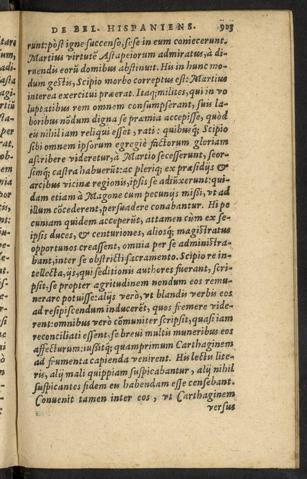 DE BEL. HISPANIENS. 923
runt: pòst igne succenso, sese in eum coniecerunt.
Martius virtutē Astapeiorum admiratus, à di-
ruendis eorū domibus abstinuit. His in hunc mo-
dum gestis, Scipio morbo correptus est: Martius
interea exercitui praeerat. Itaq; milites, qui in vo
luptatibus rem omnem consumpserant, suis la-
boribus nōdum digna se praemia accepisse, quòd
eu nihil iam reliqui esset, rati: quibusq; Scipio
sibi omnem ipsorum egregiè factorum gloriam
ascribere videretur, à Martio secesserunt, seor-
simq; castra habuerūt: ac pleriq; ex praesidijs &
arcibus vicinae regionis, ipsis se adiūxerunt: qui-
dam etiam à Magone cum pecunijs missi, vt ad
illum cōcederent, persuadere conabantur. Hi pe
cuniam quidem acceperūt, attamen cùm ex se-
ipsis duces, & centuriones, aliosq; magistratus
opportunos creassent, omnia per se administra-
bant, inter se obstricti sacramento. Scipio re in-
tellecta, ijs, qui seditionis authores fuerant, scri-
psit, se propter aegritudinem nondum eos remu-
nerare potuisse: alijs verò, vt blandis verbis eos
ad resipiscendum induceret, quos fremere vide-
rent: omnibus verò cōmuniter scripsit, quasi iam
reconciliati essent. se breui multis muneribus eos
affecturum: iussitq; quamprimum Carthaginem
ad frumenta capienda venirent. His lectis lite-
ris, alij mali quippiam suspicabantur, alij nihil
suspicantes fidem eu habendam esse censebant.
Conuenit tamen inter eos, vt Carthaginem
versus